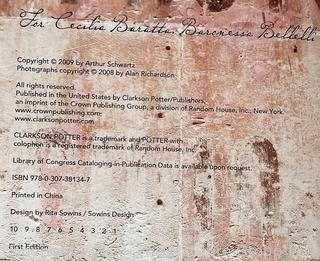 For Cecilia Baratta, Baronessa Bellelli
Copyright © 2009 by Arthur Schwartz
Photographs copyright © 2008 by Alan Richardson
All rights reserved.
Published in the United States by Clarkson Potter/Publishers,
an imprint of the Crown Publishing Group, a division of Random House, Inc., New York.
www.crownpublishing.com
www.clarksonpotter.com
CLARKSON POTTER is a trademark and POTTER with
colophon is a registered trademark of Random House, Inc.
Library of Congress Cataloging-in-Publication Data is available upon request.
ISBN 978-0-307-38134-7
Printed in China
Design by Rita Sowins / Sowins Design
10 9 8 7 6 5 4 3 2 1
First Edition